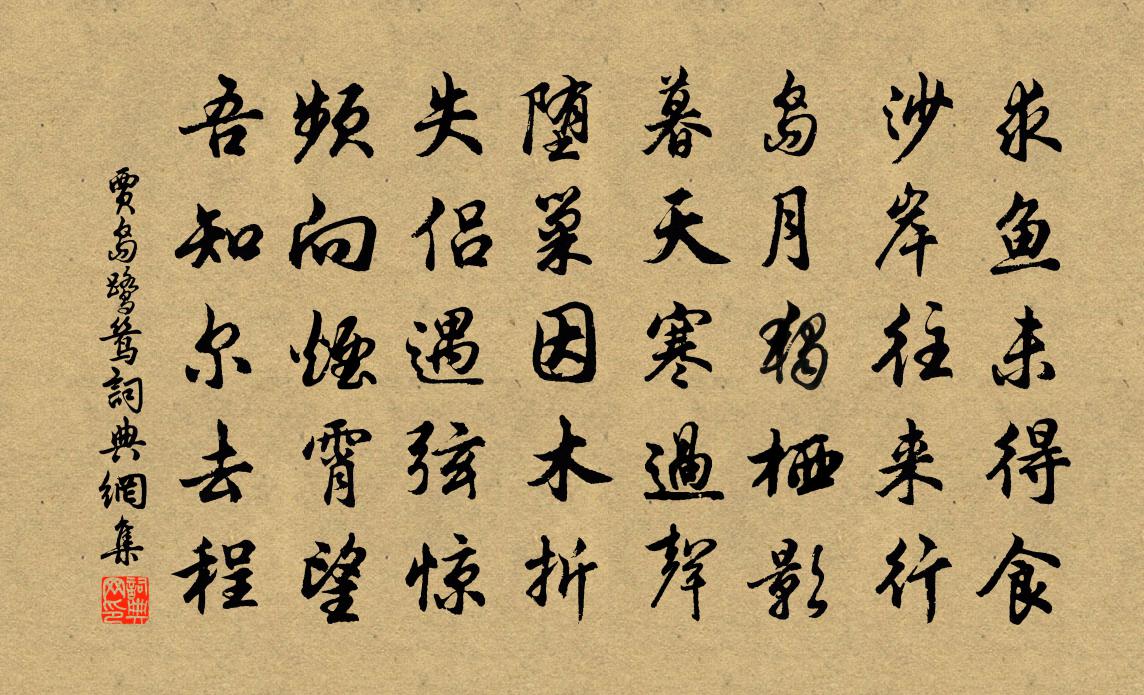 求鱼未得食
沙岸往来行
岛月独栖影
暮天寒过声
堕巢因木折
失侣遇弦惊
频向烟霄望
吾知尔去程
贾岛鹭鸶词典网集
词典网印